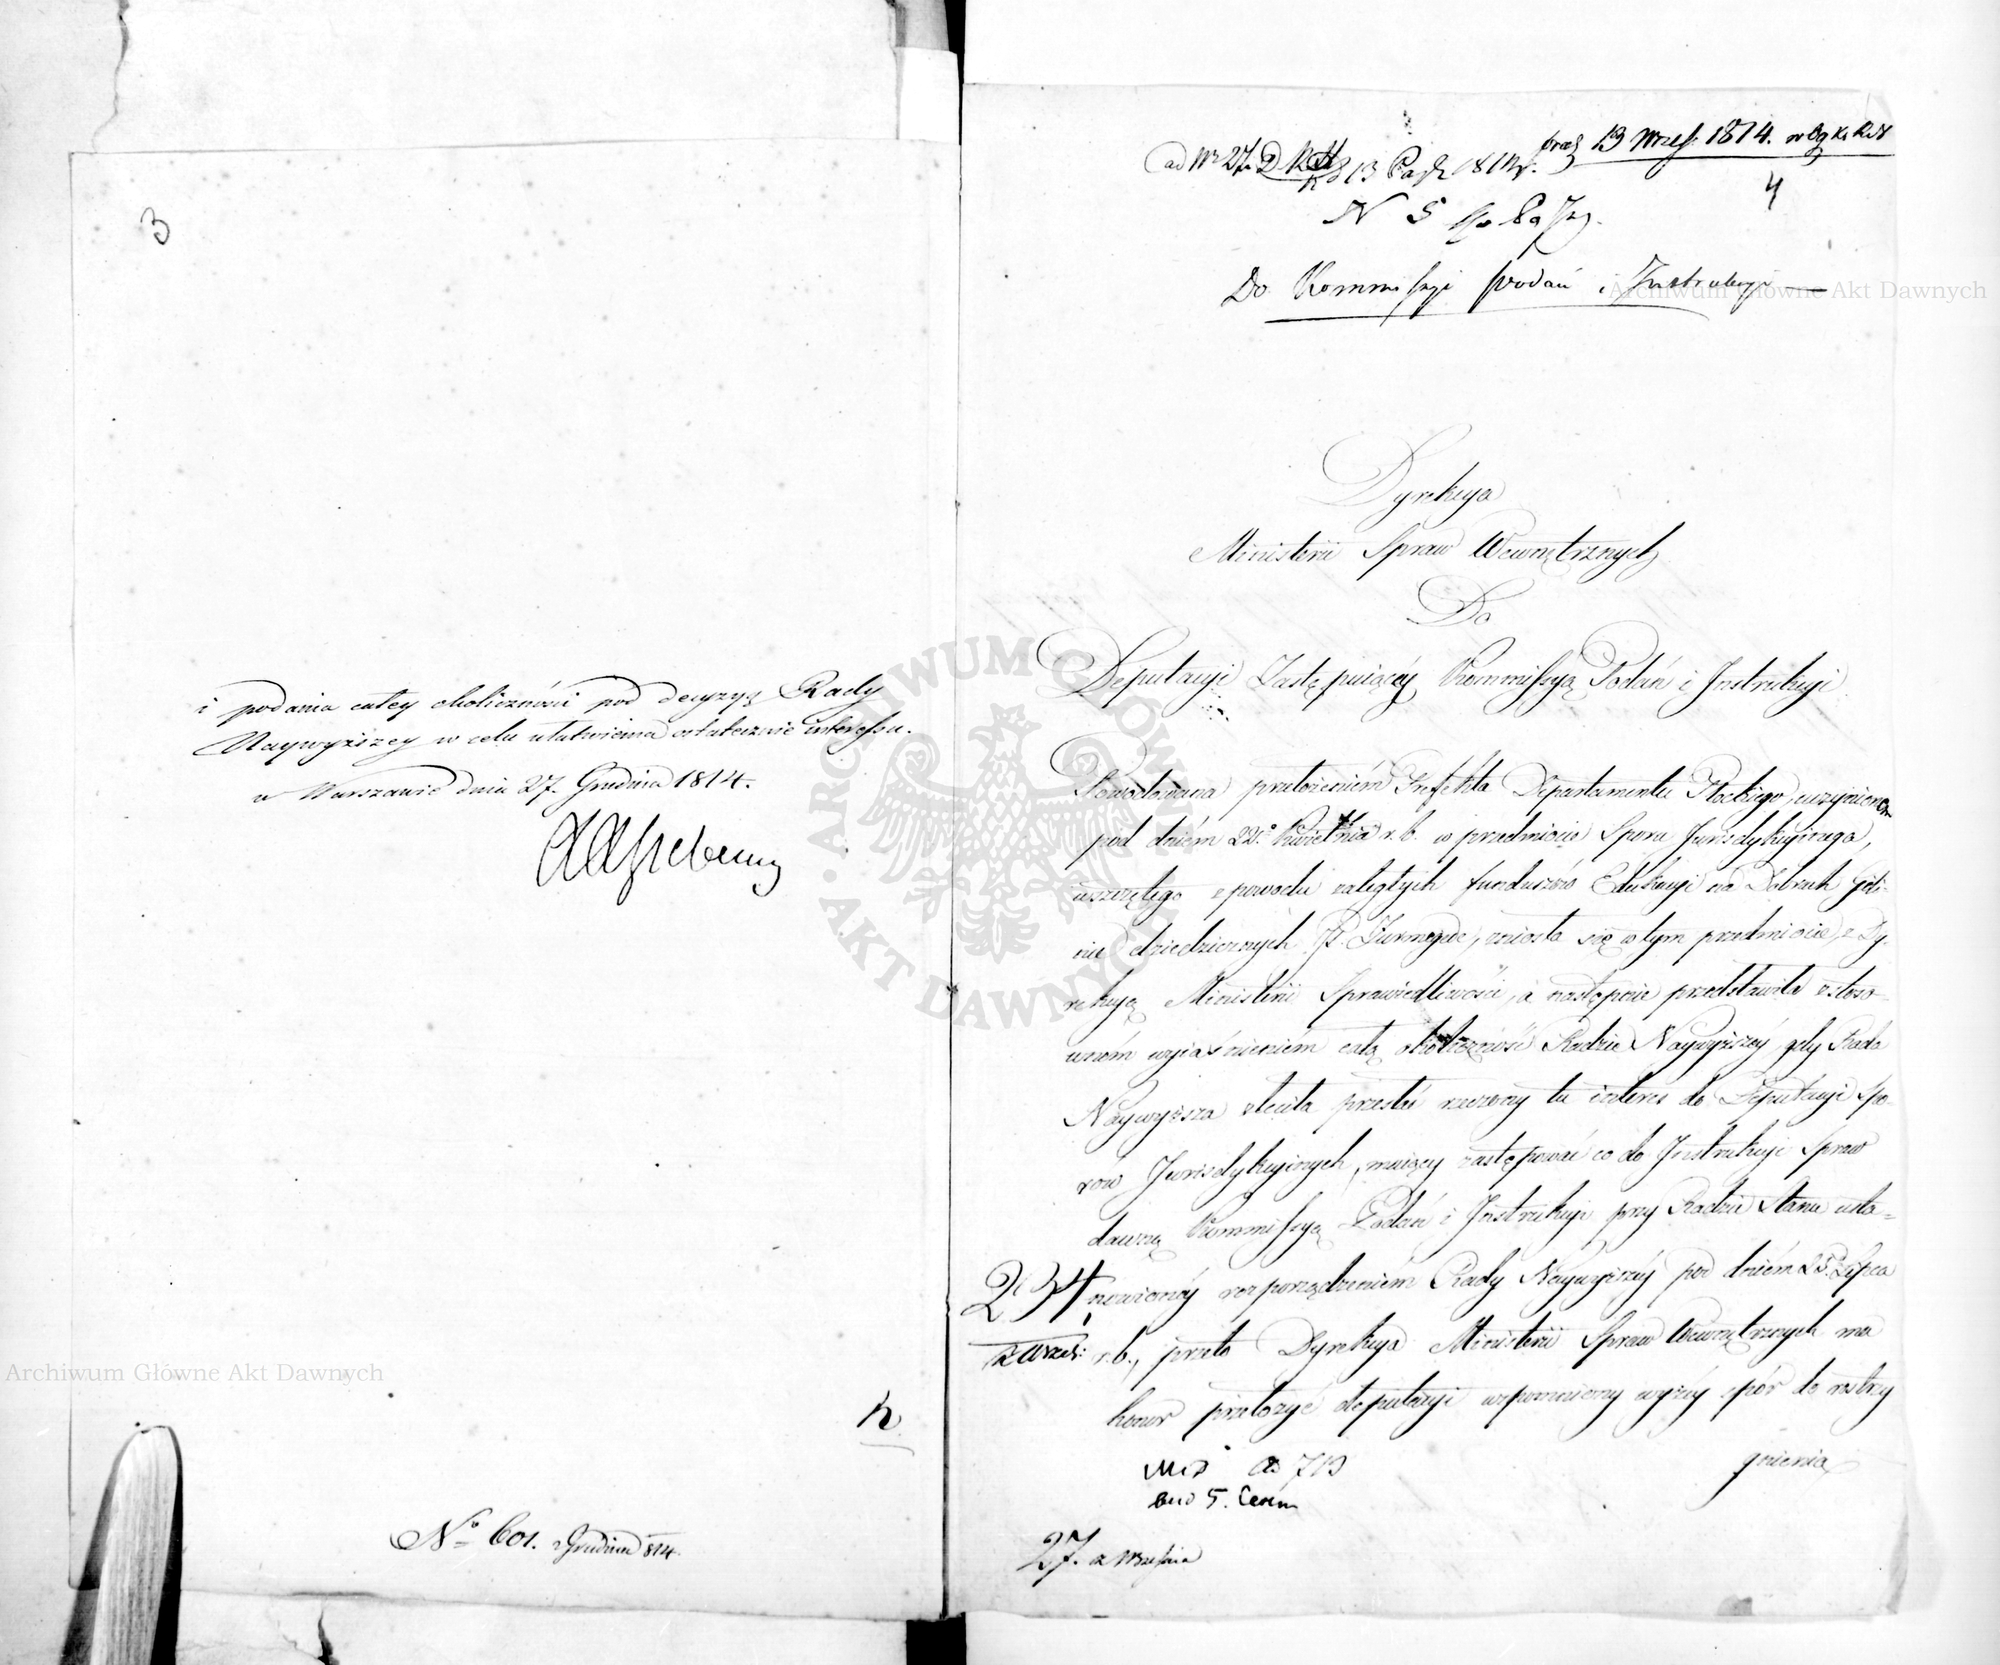 3
i podania całey okoliczności pod decyzyą Rady
Naywyższey w celu ułatwienia ostatecznie interessu.
w Warszawie dnia 27. Grudnia 1814.
N° 601. z Grudnia 814.
13 Wrześ: 1814.
ad Nr 27
4
N 5
Do Kommissyi Podań i Instrukcyi
Dyrekcya
Ministerii Spraw Wewnętrznych
Do
Deputacyi Zastępuiącéy Kommissyą Podań i Instrukcyi
Powodowana przełożeniém Prefekta Departamentu Płockiego, uczynioném
pod dniém 22° Kwietnia r. b. w przedmiocie Sporu Jurisdykcyinego,
wszczętego z powodu zaległych funduszów Edukacyi na Dobrach
nie dziedzicznych zniosła się w tym przedmiocie z Dy-
rekcyą Ministerii Sprawiedliwości, a następnie przedstawiła z stoso-
wném wyiaśnieniém całą okoliczność Radzie Naywyższéy, gdy Rada
Naywyższa zleciła przesłać rzeczony tu interes do Deputacyi Spo-
rów Jurisdykcyinych, maiącéy zastępować co do Instrukcyi Spraw
dawną Kommissyą Podań i Instrukcyi przy Radzie Stanu usta=
nowionéy rozporządzeniém Rady Naywyższéy pod dniém 25° Lipca
234
z Wrześ:
r. b., przeto Dyrekcya Ministerii Spraw Wewnętrznych ma
honor przełożyć deputacyi wspomniony wyżéy spór do rostrzy
gnienia
713
27. z Września
Archiwum Główne Akt Dawnych
Archiwum Główne Akt Dawnych
ARCHIWUM GŁÓWNE AKT DAWNYCH